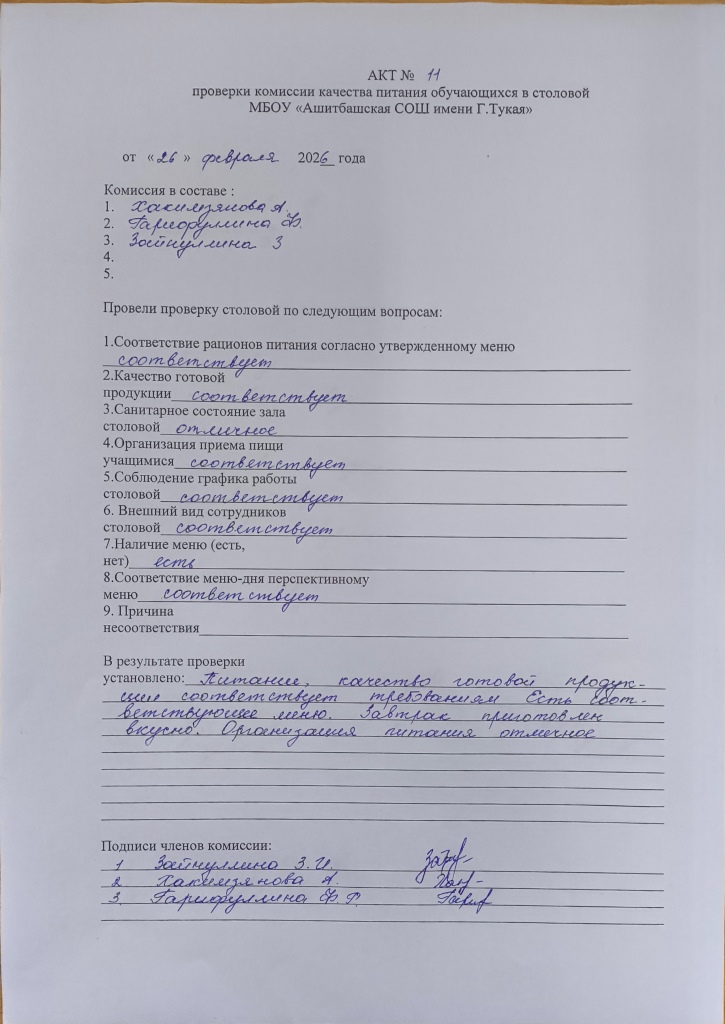 АКТ № 11
проверки комиссии качества питания обучающихся в столовой
МБОУ «Ашитбашская СОШ имени Г.Тукая»
от «26» февраля 2026 года
Комиссия в составе :
1. Хакимзянова А.
2. Гарифуллина Ф.
3. Зайнуллина З
4.
5.
Провели проверку столовой по следующим вопросам:
1.Соответствие рационов питания согласно утвержденному меню
соответствует
2.Качество готовой
продукции соответствует
3.Санитарное состояние зала
столовой отличное
4.Организация приема пищи
учащимися соответствует
5.Соблюдение графика работы
столовой соответствует
6. Внешний вид сотрудников
столовой соответствует
7.Наличие меню (есть,
нет) есть
8.Соответствие меню-дня перспективному
меню соответствует
9. Причина
несоответствия
В результате проверки
установлено: Питание, качество готовой продук-
ции соответствует требованиям Есть соот-
ветствующее меню. Завтрак приготовлен
вкусно. Организация питания отличное
Подписи членов комиссии:
1 Зайнуллина З.И.
2 Хакимзянова А.
3. Гарифуллина Ф.Р.